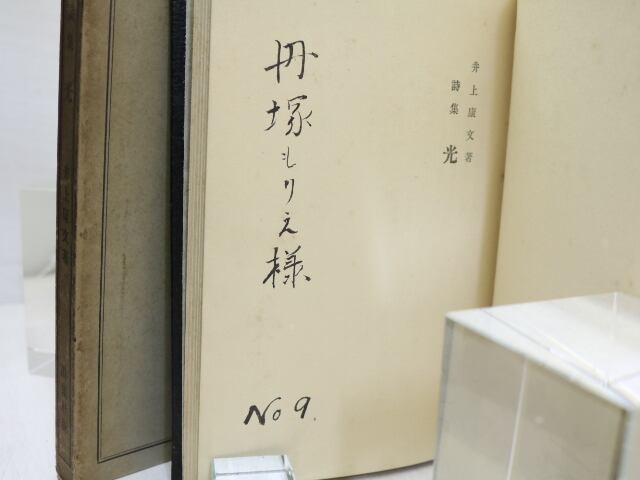 井上康文著
詩集 光
丹塚もりえ様
No 9.